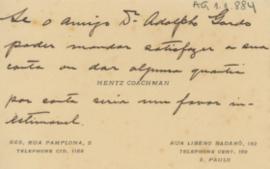 AG.1.1.884
Se o amigo Dr Adolpho Gordo
poder mandar satisfazer a sua
conta ou dar alguma quantia
HENTZ COACHMAN
por conta seria um favor in-
estimavel.
RUA PAMPLONA, 2
TELEPHONE CID. 1188
RUA LIBERO BADARÓ, 182
TELEPHONE CENT.
S. PAULO